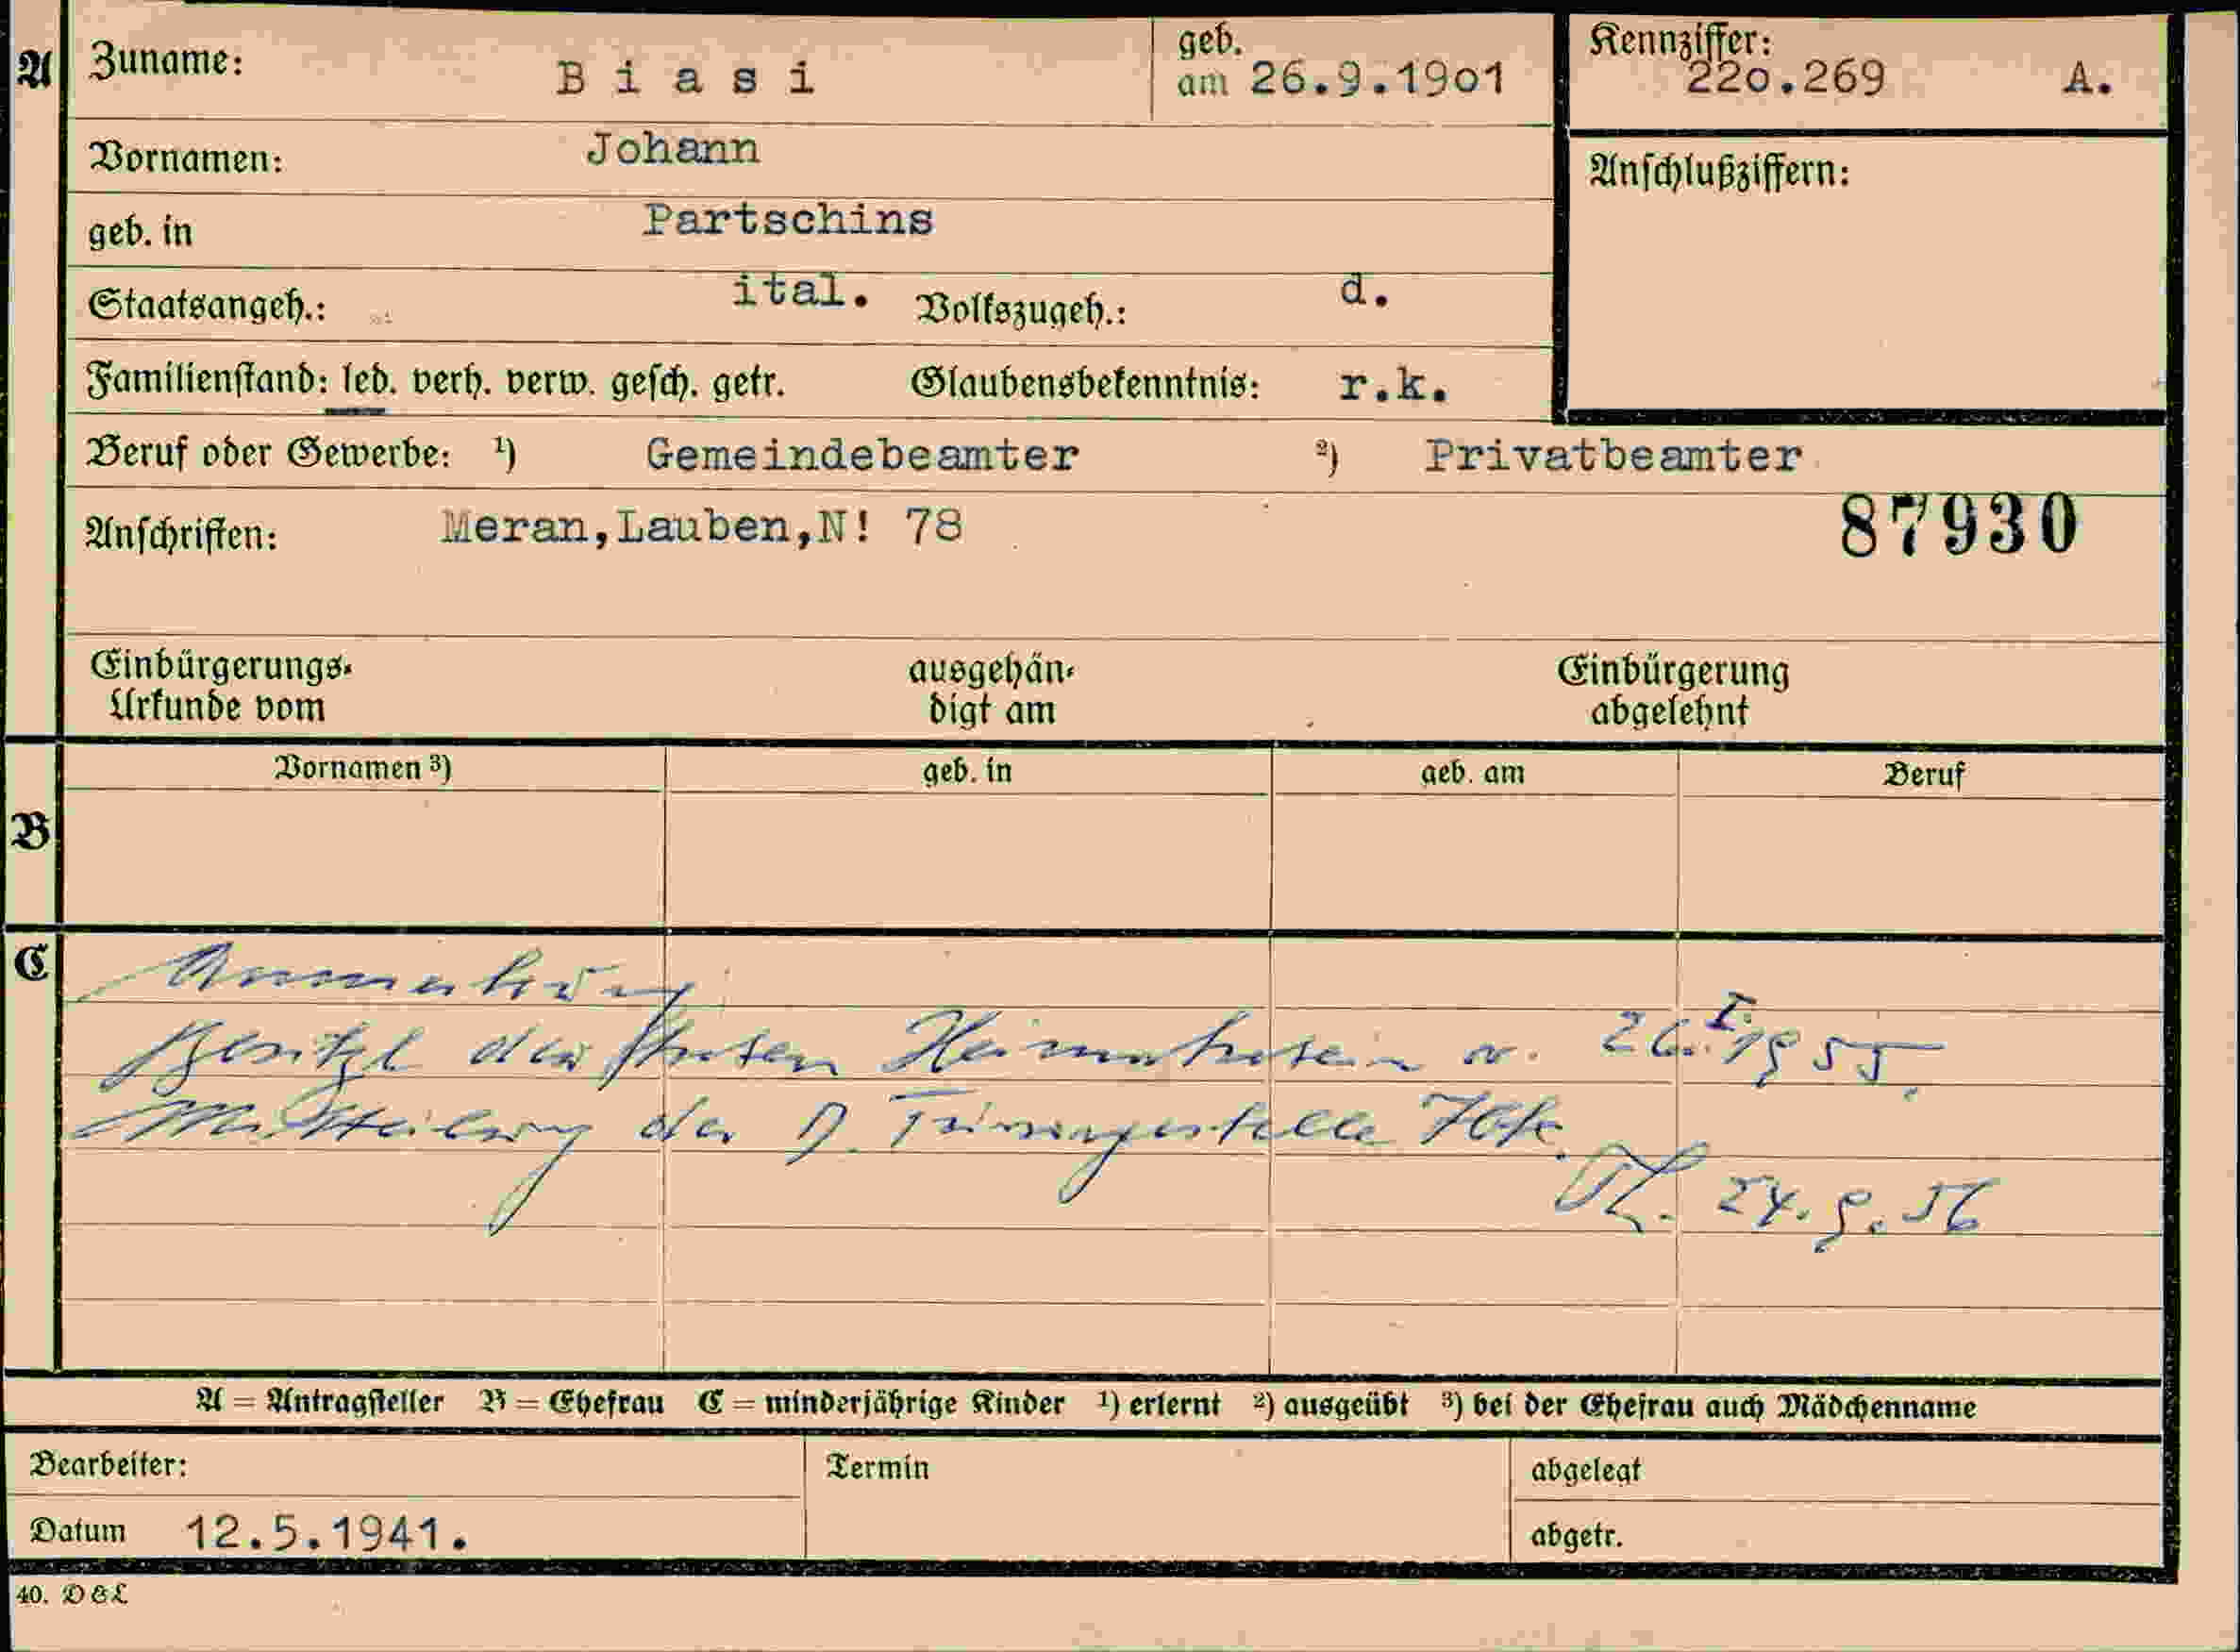 A Zuname: Biasi geb. am 26.9.19o1 Kennziffer: 22o.269 A.
Vornamen: Johann Anschlußziffern:
geb. in Partschins
Staatsangeh.: ital. Volkszugeh.: d.
Familienstand: led. verh. verw. gesch. getr. Glaubensbekenntnis: r.k.
Beruf oder Gewerbe: ¹) Gemeindebeamter ²) Privatbeamter
Anschriften: Meran,Lauben,N! 78 87930
Einbürgerungs- ausgehän- Einbürgerung
Urkunde vom digt am abgelehnt
Vornamen ³) geb. in geb. am Beruf
B
C Anmerkung
Besitzt den Heimatschein v. 26.I.1955.
Mitteilung der D.
24.9.56
A = Antragsteller B = Ehefrau C = minderjährige Kinder ¹) erlernt ²) ausgeübt ³) bei der Ehefrau auch Mädchenname
Bearbeiter: Termin abgelegt
Datum 12.5.1941. abgetr.
40. D&L